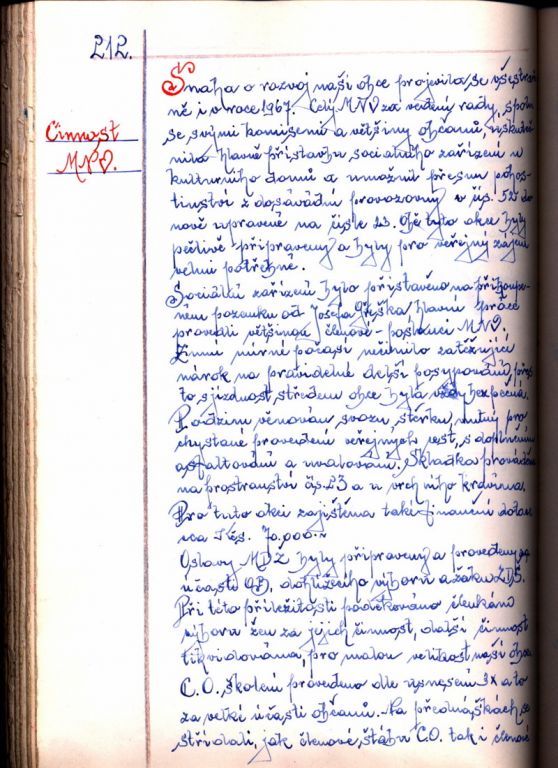 212.
Činnost
MNV.
Snaha o rozvoj naší obce projevila se všestran
ně i v roce 1967. Celý MNV za vedení rady, spolu
se svými komisemi a většiny občanů, uskuteč
nila hlavně přístavbu sociálního zařízení v
kulturního domů a umožnil přesun pohos-
tinství z dosavádní provozovny v čís. 52 do
nově upravené na čísle 23. Obě tyto akce byly
pečlivě připraveny a byly pro veřejný zájem
velmi potřebné.
Sociální zařízení bylo přistaveno na přikoupe-
ném pozemku od Josefa hlavní práce
provedli většinou členové - poslanci MNV.
Zimní mírné počasí nečinilo zatěžující
nárok na pravidelné delší posypování, přes
to, sjízdnost, středem obce byla vždy bezpečná.
Podzim věnován svozu, štěrku, nutný pro
chystané provedení veřejných cest, s doplněním
asfaltování a uválcování. Skládka prováděna
na prostranství čs. 23 a u vrchního kravína.
Pro tuto akci zajištěna také finanční dota
ce Kčs. 70.000.-
Oslavy MDŽ byly připraveny a provedeny za
účasti OB, dohlížecího výboru a žáků ZDŠ.
Při této příležitosti poděkováno členkám
výboru žen za jejich činnost, další činnost
likvidována, pro malou velikost naší obce.
C.O. školení provedeno dle usnesení 3x a to
za velké účasti občanů. Na přednáškách, se
střídali, jak členové, štábu C.O. tak i členové